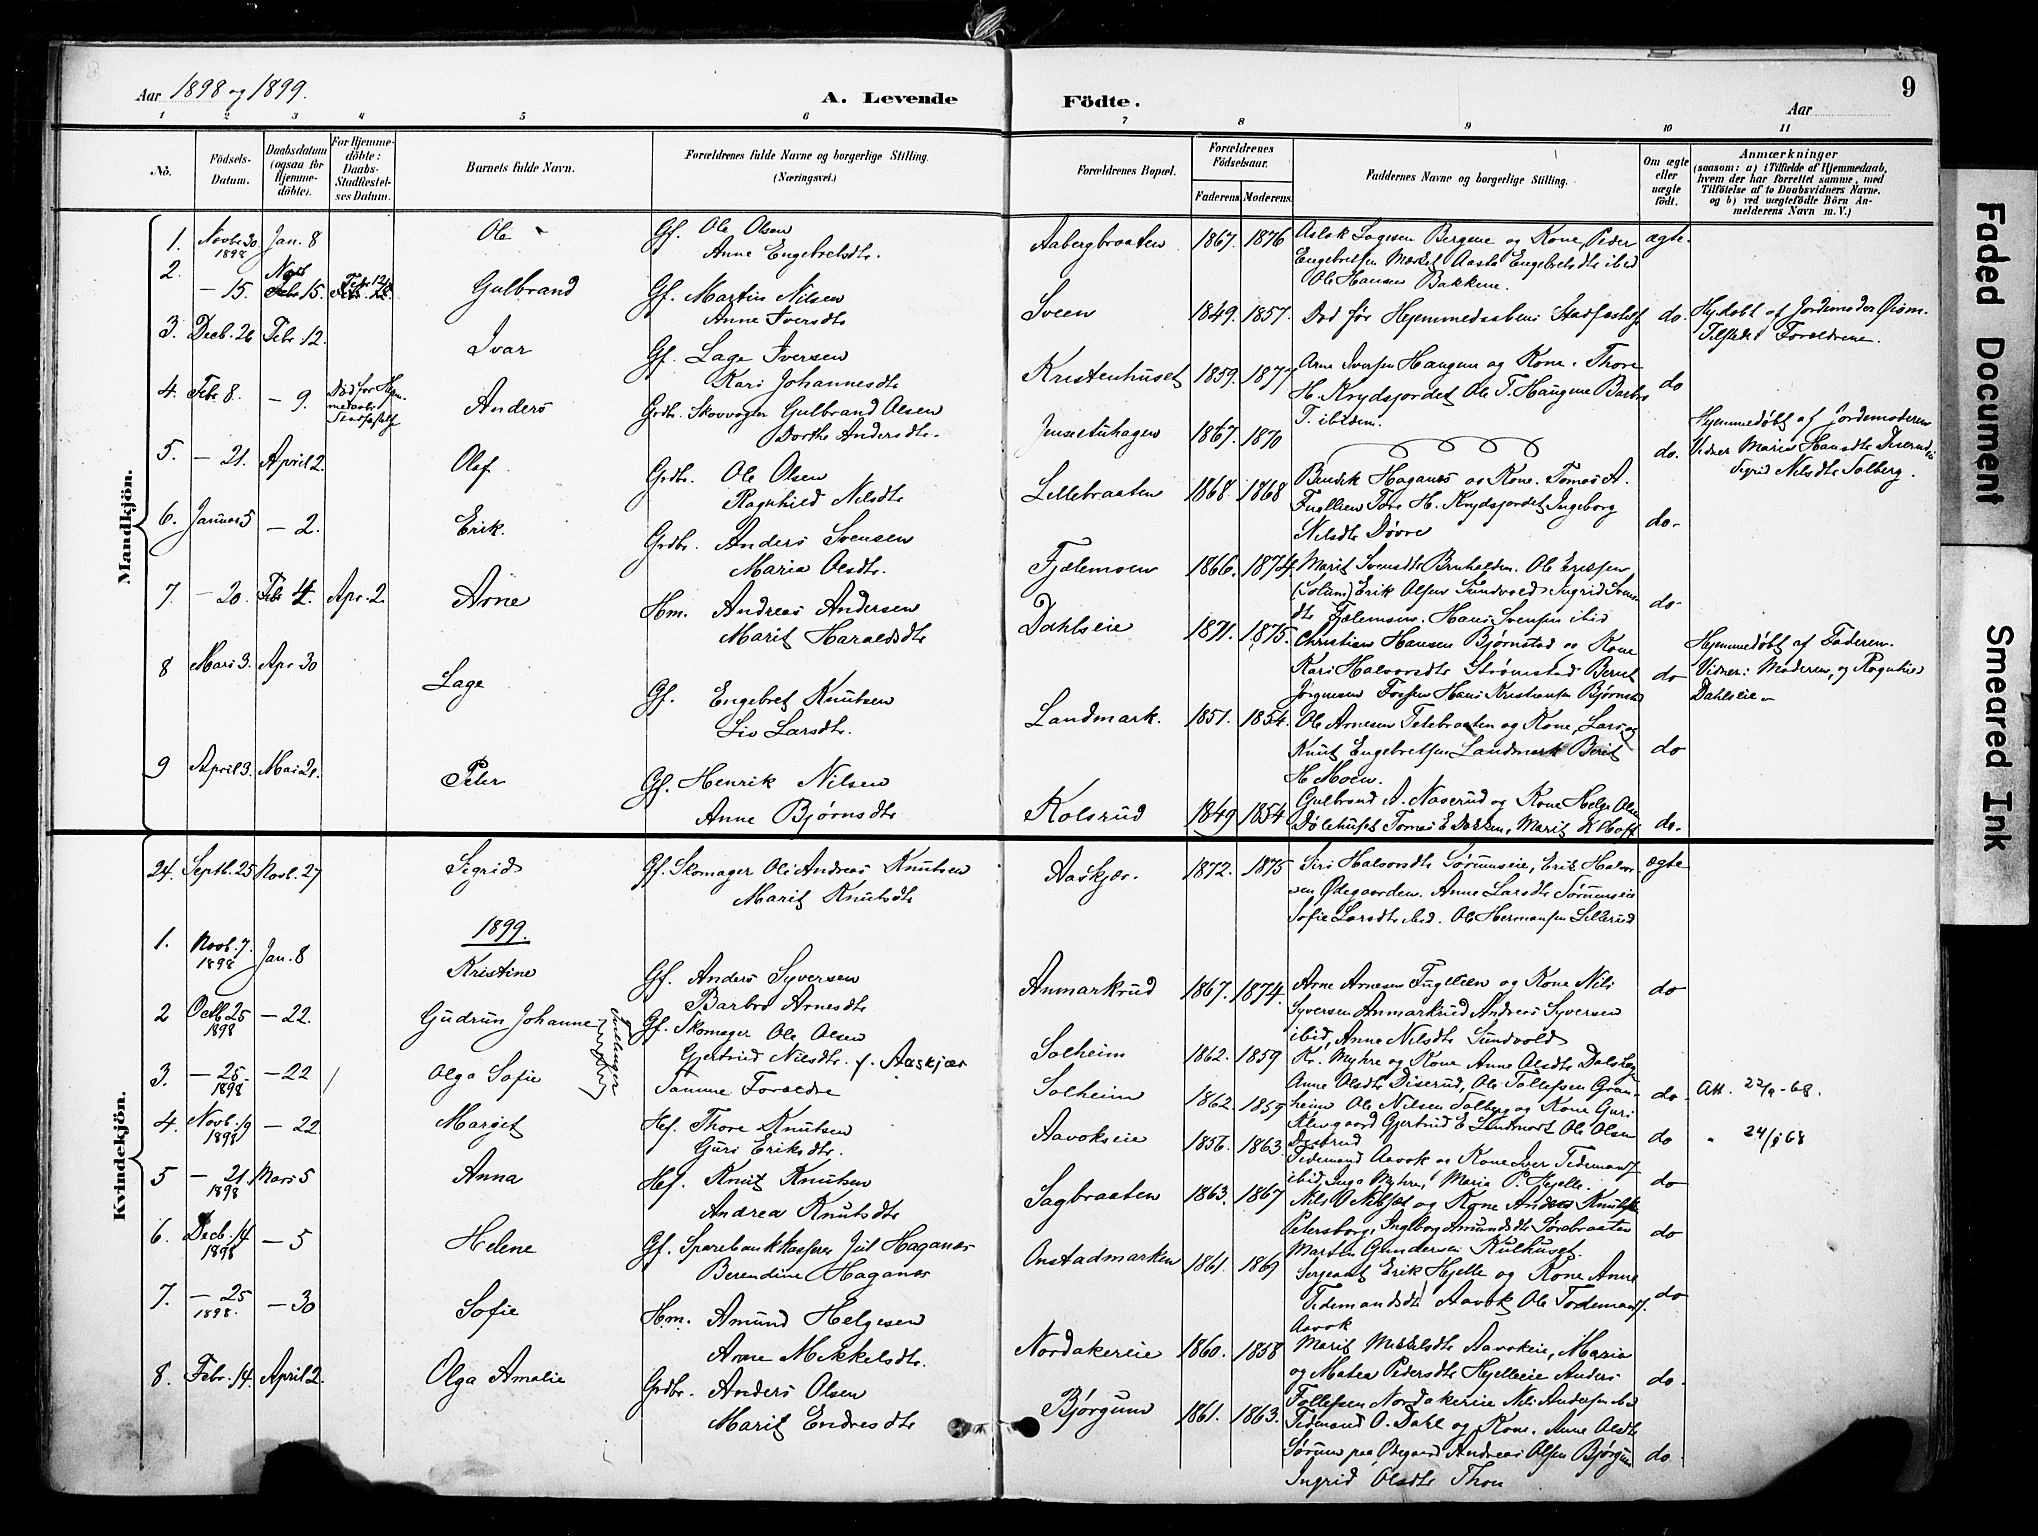 9
Aar 1898 og 1899.
A. Levende Födte.
Aar
1 2 3 4 5 6 7 8 9 10 11
No.
Födsels-Datum.
Daabsdatum (ogsaa for Hjemmedöbte).
For Hjemmedöbte: Daabs-Stadfæstelses Datum.
Barnets fulde Navn.
Forældrenes fulde Navne og borgerlige Stilling. (Næringsvei.)
Forældrenes Bopæl.
Forældrenes Födselsaar.
Faderens. Moderens.
Faddernes Navne og borgerlige Stilling.
Om ægte eller uægte født.
Anmærkninger
(saasom: a) i Tilfælde af Hjemmedaab, hvem der har forrettet samme, med Tilföielse af to Daabsvidners Navne, og b) ved uægtefödte Börn Anmelderens Navn m. V.)
Mandkjön.
1. Novb. 30 1898 Jan. 8 Ole Gf. Ole Olsen
Anne Engebretsdtr.
Aabergbraaten 1867. 1876 Aslak Lagesen Bergene og Kone, Peder
Engebretsen Aasta Engebretsdtr ibid
Ole Hansen Bakkene.
ægte
2. — 15. Gulbrand Gf. Martin Nilsen
Anne Iversdtr
Sveen 1849. 1857. Død før Hjemmedaabens Stadfæstelse do.
Hj.døbt af Jordemoder
Tilstede Forældrene.
3. Decb. 26 Febr 12. Ivar Gf. Lage Iversen
Kari Johannesdtr
Kristenhuset 1859. 1877 Arne Iversen Haugene og Kone. Thore
H. Krydsjordet Ole T. Haugene Barbro
T. ibidem.
do
4. Febr 8. — 9. Død før Hjemmedaabs Stadfæstelse Anders Grdbr. Skovvogter Gulbrand Olsen
Dorthe Andersdtr.
Jensestuhagen 1867. 1870 do.
Hjemmedøbt af Jordemoderen
Vidner Marie Hansdtr Diserud
Sigrid Nilsdtr Tolberg.
5. — 21. April 2. Olaf. Grdbr. Ole Olsen
Ragnhild Nilsdtr
Lillebraaten 1868. 1868 Bendik Haganæs og Kone. Tomas A.
Fugllien Tore H. Krydsjordet Ingeborg
Nilsdtr Døvre
do-
6. Januar 5 — 2. Erik. Grdbr. Anders Svensen
Maria Olsdtr.
Fjælemoen 1866. 1874. Marit Svensdtr Bruhølden. Ole Eriksen
(Solum) Erik Olsen Sundvold Ingrid Svensdtr
Fjælemoen. Hans Svensen ibid
do-
7. — 20. Apr. 2. Arne Hm. Andreas Andersen
Marit Haraldsdtr
Dahlseie 1871. 1875. Christian Hansen Bjørnstad og Kone
Kari Halvorsdtr Strømstad Bernt
Jørgensen Fossen Hans Kristiansen Bjørnstad
do
Hjemmedøbt af Faderen.
Vidner: Moderen, og Ragnhild
Dahlseie.
8 Mars 3. Apr 30 Lage Gf. Engebret Knutsen
Liv Larsdtr.
Landmark. 1851. 1854. Ole Arnesen Telebraaten og Kone, Lars og
Knut Engebretsen Landmark Berit
H. Moen.
do
9 April 3. Mai 21. Peter Gf. Henrik Nilsen
Anne Bjørnsdtr
Kolsrud 1849 1854 Gulbrand A. Naserud og Kone Helge Olsen
Dølehuset Tomas E. Dokken, Marit K Hoff
do.
Kvindekjön.
24. Septb. 25 Novb. 27 Sigrid Gf. Skomager Ole Andreas Knutsen
Marit Knutsdtr
Aaskjær. 1872. 1875 Siri Halvorsdtr Sørumseie, Erik Halvorsen
Ødegaarden. Anne Larsdtr Sørumseie
Sofie Larsdtr ibid. Ole Hermansen Lillerud
ægte
1899.
1. Novb. 7. 1898 Jan. 8 Kristine Gf. Anders Syversen
Barbro Arnesdtr
Anmarkrud 1867. 1874. Arne Arnesen Fugllien og Kone Nils
Syversen Anmarkrud Andreas Syversen
ibid, Anne Nilsdtr Sundvold
do
2 Octb 25 1898 — 22. Gudrun Johanne Tvillinger Gf. Skomager Ole Olsen
Gjertrud Nilsdtr. f. Aaskjær
Solheim 1862. 1859 Kr. Myhre og Kone Anne Olsdtr
3. — 25. 1898 — 22 Olga Sofie Samme Forældre
Solheim 1862. 1859 Anne Olsdtr Diserud, Ole Tollefsen Granheim
Ole Nilsen Tolberg og Kone Guri
do. Att. 27/9-68.
4. Novb. 19 1898 — 22. Marget Hef. Thore Knutsen
Guri Eriksdtr.
Aavokseie 1856. 1863. Gjertrud E. Landmark Ole Olsen
Diserud
do " 24/1 68
5 — 21. 1898 Mars 5 Anna Hef. Knut Knutsen
Andrea Knutsdtr
Sagbraaten 1863. 1867 Tidemand Aavok og Kone Iver Tidemansen
ibid, Inga Myhre, Maria P. Hjelle.
do
6. Decb. 14 1898 — 5 Helene Gf. Sparebankkasserer Juul Haganæs
Berendine Haganæs
Onstadmarken 1861. 1869 og Kone Anders Knutsen
Petersborg, Ingeborg Amundsdtr
Martin Gundersen Kulhuset.
do
7. — 25 1898. — 30 Sofie Hm. Amund Helgesen
Anne Mikkelsdtr.
Nordakereie 1860. 1858 Sergeant Erik Hjelle og Kone Anne
Tidemandsdtr Aavok Ole Tidemans.
Aavok
Marit Aavokeie, Maria
og Matea Pedersdtr Hjelleeie Anders
do.
8. Febr. 14. April 2. Olga Amalie Grdbr. Anders Olsen
Marit Endresdtr
Bjørgum 1861. 1863. Tollefsen Nordakereie Nils Andersen ibid
Tidemand O. Dahl og Kone. Anne Olsdtr
Sørum paa Ødegaard Andreas Olsen Bjørgum
Ingrid Olsdtr Thon
do.
Faded Document
Smeared Ink